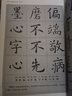 墨磨偏
心不端
字不敬
心先病